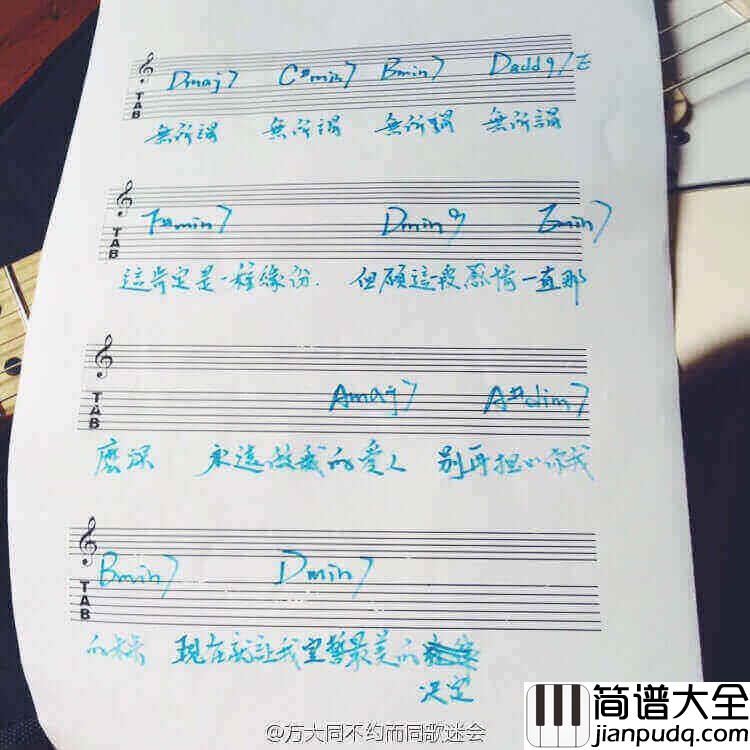 Dmaj7 C#min7 Bmin7 Dadd9/E
TAB
無所謂 無所謂 無所謂 無所謂
F#min7 Dmin9 Emin7
TAB
這肯定是一種緣份. 但願這段感情一直那
Amaj7 A#dim7
TAB
麼深 永遠做我的愛人 別再担心你我
Bmin7 Dmin7
TAB
的 現在就讓我宣誓最美的
决定
@方大同不约而同歌迷会
简谱大全
jianpudq.com